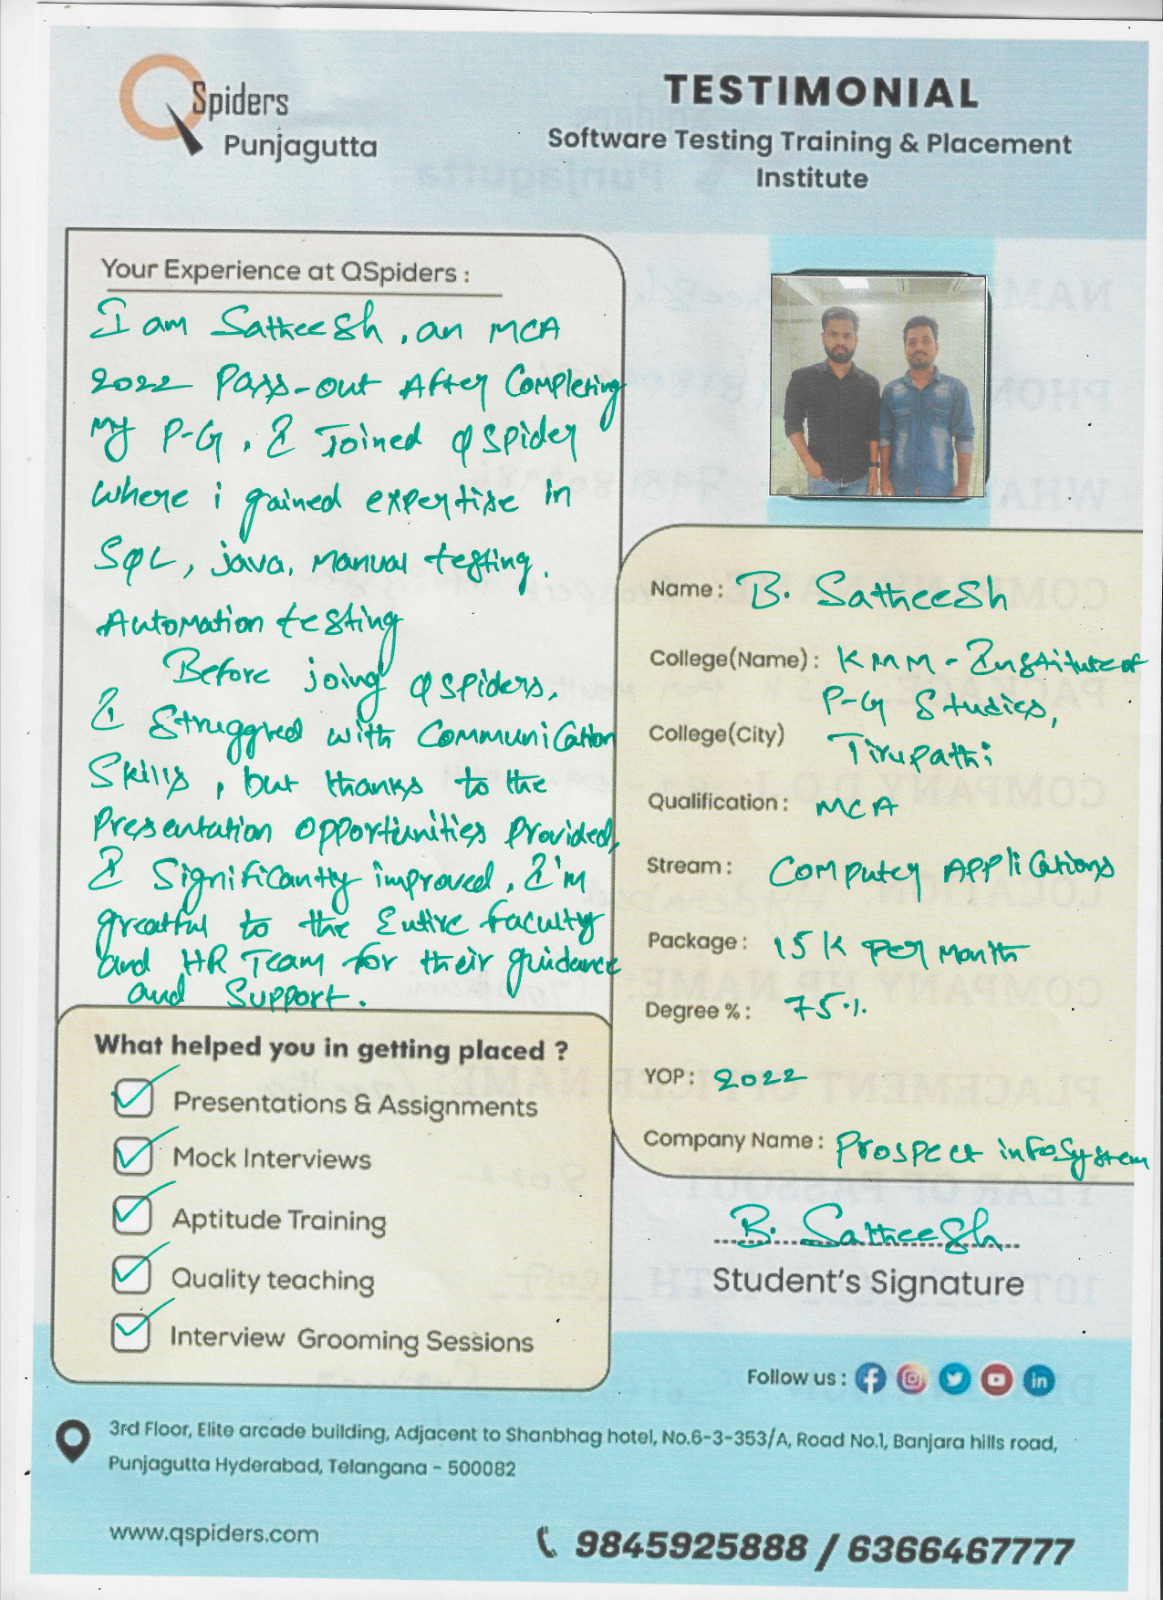 QSpiders
Punjagutta
TESTIMONIAL
Software Testing Training & Placement
Institute
Your Experience at QSpiders :
I am Satheesh, an MCA
2022 Pass-out After Completing
My P-G, I Joined QSpider
where i gained expertise in
SQL, java, Manual testing.
Automation testing
Before joing QSpiders,
I Struggred with Communication
Skills, but thanks to the
Presentation opportunities Provided,
I Significantly improved, I'm
greatful to the Entire faculty
and HR Team for their guidance
and Support.
What helped you in getting placed ?
Presentations & Assignments
Mock Interviews
Aptitude Training
Quality teaching
Interview Grooming Sessions
Name : B. Satheesh
College(Name) : KMM - Institute of
P-G Studies,
College(City) Tirupathi
Qualification : MCA
Stream : Computer Applications
Package : 15K Per Month
Degree % : 75%
YOP : 2022
Company Name : Prospect infoSystem
B. Satheesh
Student's Signature
Follow us :
3rd Floor, Elite arcade building, Adjacent to Shanbhag hotel, No.6-3-353/A, Road No.1, Banjara hills road,
Punjagutta Hyderabad, Telangana - 500082
www.qspiders.com
9845925888 / 6366467777